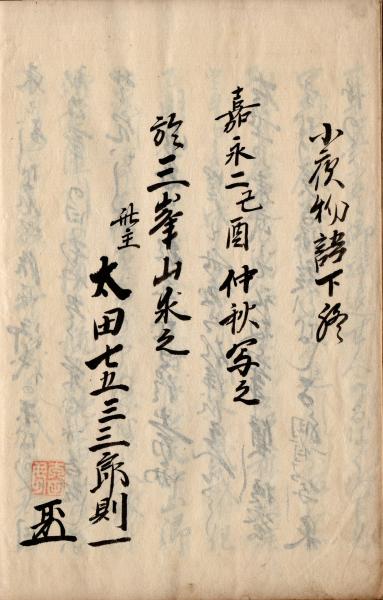 小夜物語下終
嘉永二己酉仲秋写之
於三峯山求之
此主
太田七五三三郎則一